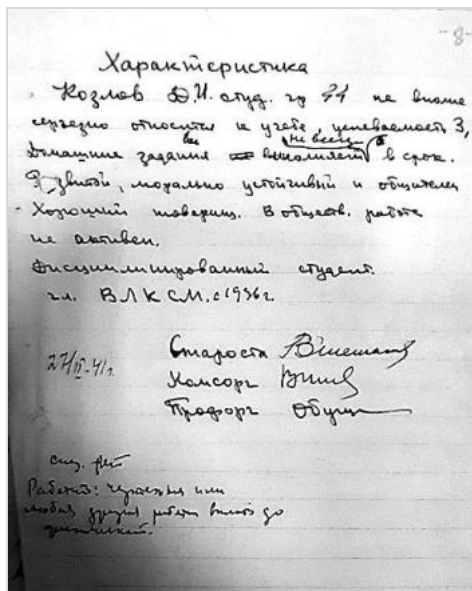 -8-
Характеристика
Козлов Д.И. студ. гр 44 не вполне
серьезно относится к учебе, успеваемость 3,
Домашние задания вып не всегда выполняет в срок.
Развитой, морально устойчивый и общителен
Хороший товарищ. В обществ. работе
не активен.
Дисциплинированный студент.
чл. ВЛКСМ. с 1936 г.
Староста
27/II-41г. Комсорг
Профорг
Работа: чертежная или
любая другая работа вплоть до
физической.